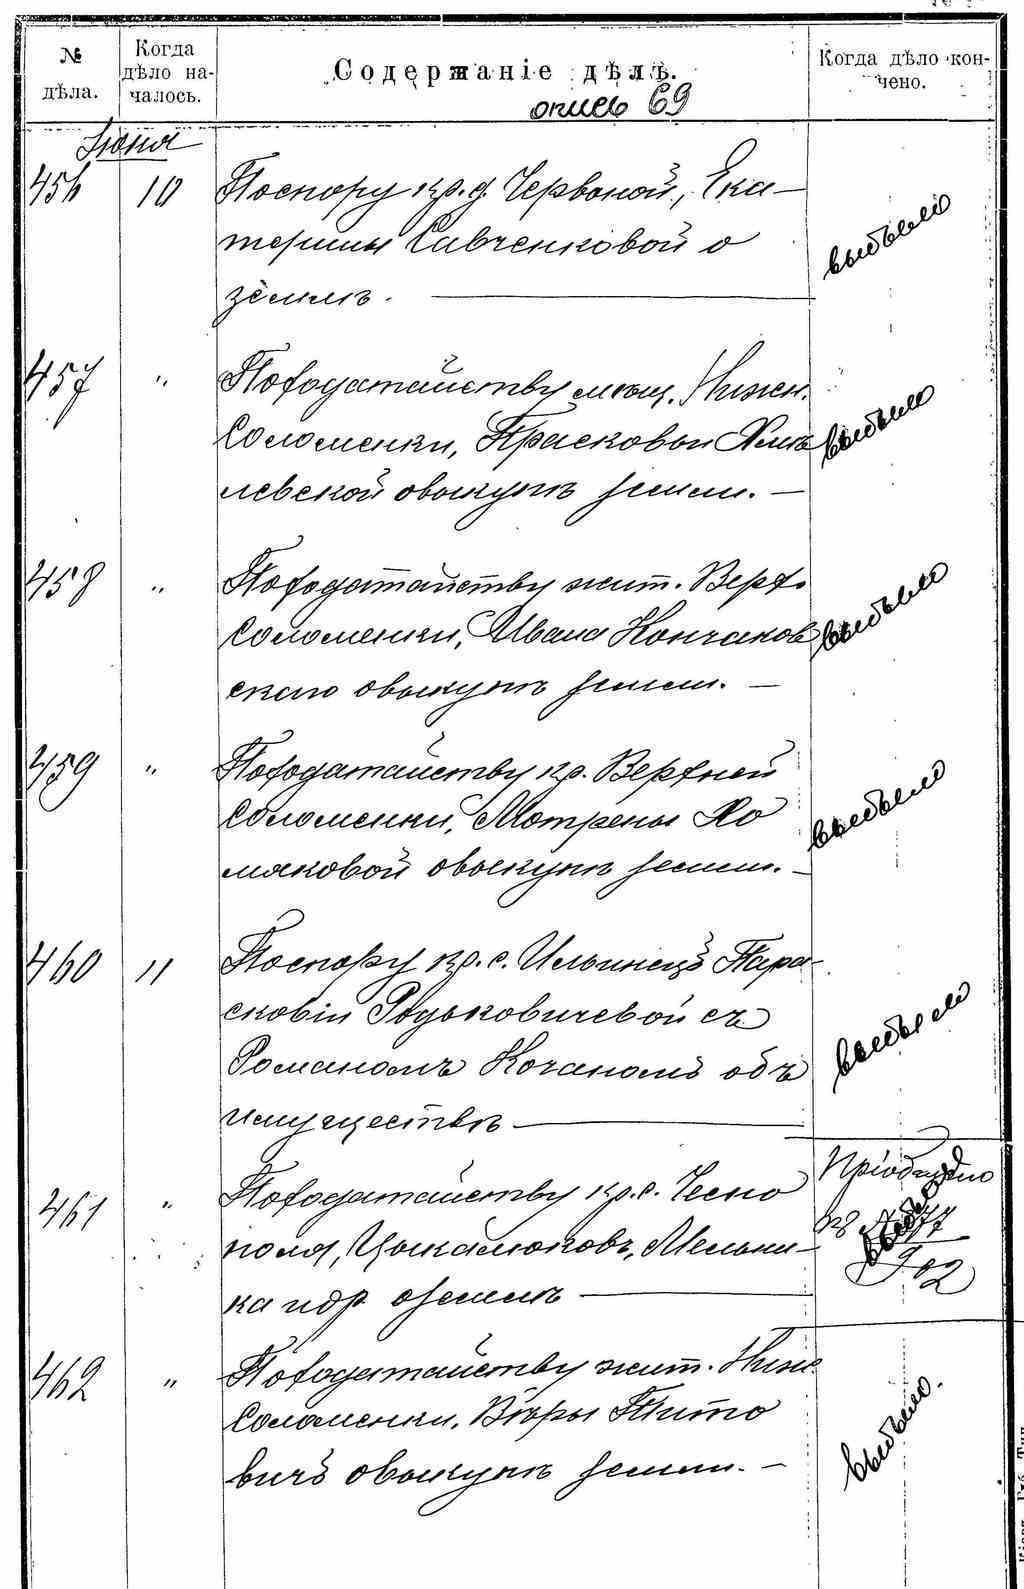 № дѣла. Когда дѣло началось. Содержаніе дѣлъ. Когда дѣло кончено.
опись 69
Іюня
456 10 По спору кр. д. Червоной, Ека-
терины Савченковой о
землѣ. выбыло
457 " По ходатайству мѣщ. Нижн.
Соломенки, Прасковьи Хмѣ
левской о выкупѣ земли. — выбыло
458 " По ходатайству жит. Верх.
Соломенки, Ивана Кончаков
скаго о выкупѣ земли. — выбыло
459 " По ходатайству кр. Верхней
Соломенки, Мотрены Хо
мяковой о выкупѣ земли. — выбыло
460 11 По спору кр. с. Ильинецъ Пара-
сковіи Родьковичевой съ
Романомъ Кочаномъ объ
имуществѣ — выбыло
461 " По ходатайству кр. с. Чесно
поля, Цыкалюковъ, Мельни-
ка и др. о землѣ —
къ № 77
902
выбыло
462 " По ходатайству жит. Нижн.
Соломенки, Вѣры Тито
вичъ о выкупѣ земли. — выбыло.